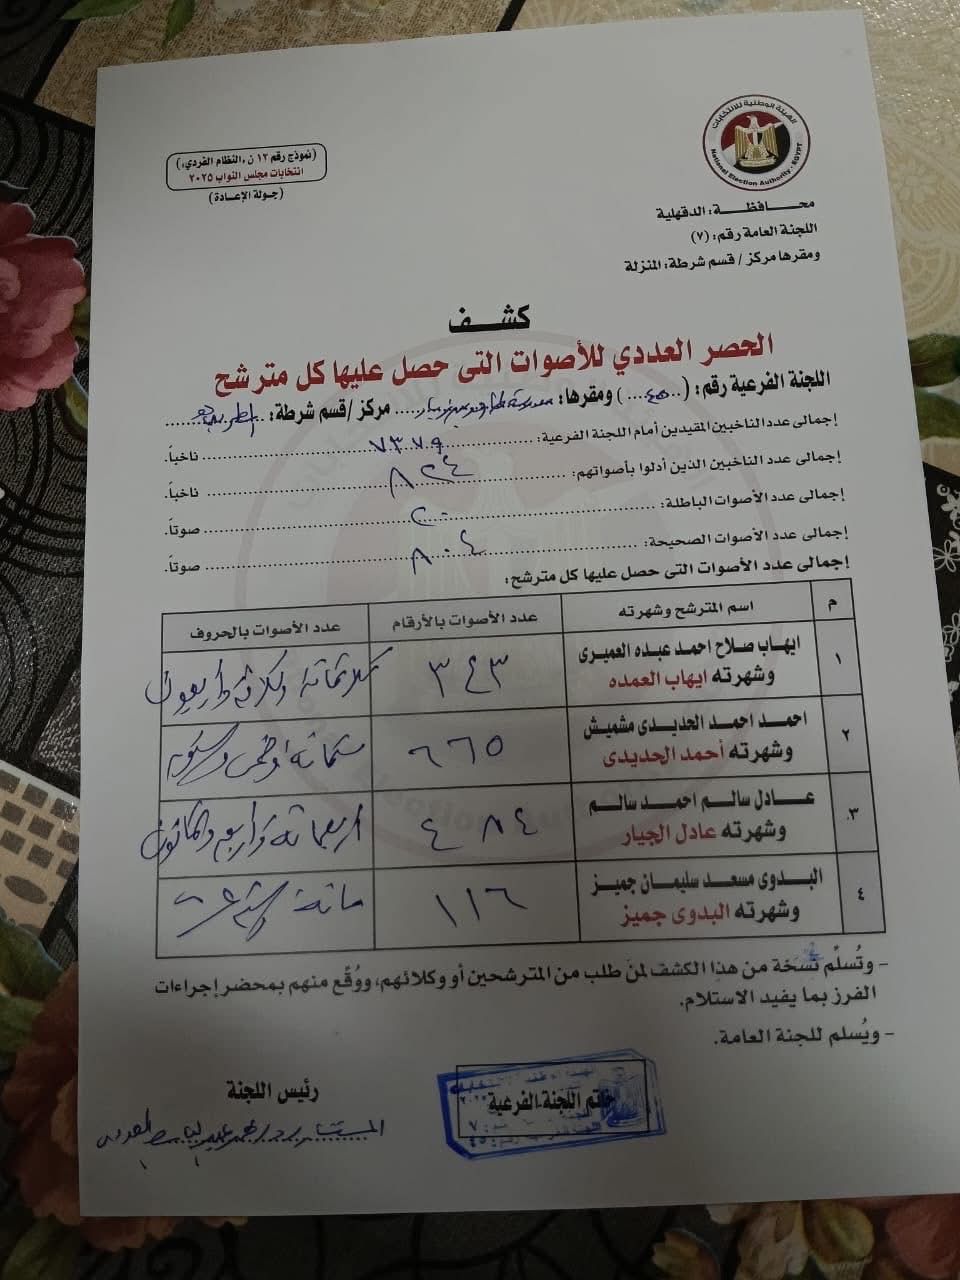 الهيئة الوطنية للانتخابات
National Election Authority - EGYPT
(نموذج رقم ١٢ ن، النظام الفردي،)
انتخابات مجلس النواب ٢٠٢٥
(جولة الإعادة)
محـــافظـــة: الدقهلية
اللجنة العامة رقم: (٧)
ومقرها مركز / قسم شرطة: المنزلة
كشـــف
الحصر العددي للأصوات التى حصل عليها كل مترشح
اللجنة الفرعية رقم: (٤٥) ومقرها: مدرسة مركز /قسم شرطة:
إجمالى عدد الناخبين المقيدين أمام اللجنة الفرعية: ٧٣٧٩ ناخباً.
إجمالى عدد الناخبين الذين أدلوا بأصواتهم: ٨٢٤ ناخباً.
إجمالى عدد الأصوات الباطلة: ٢٠ صوتاً.
إجمالى عدد الأصوات الصحيحة: ٨٠٤ صوتاً.
إجمالى عدد الأصوات التى حصل عليها كل مترشح:
م اسم المترشح وشهرته عدد الأصوات بالأرقام عدد الأصوات بالحروف
١ ايهاب صلاح احمد عبده العميرى ٣٤٣ ثلاثمائة وثلاثة واربعون
وشهرته ايهاب العمده
٢ احمد احمد الحديدى مشميش ٦٦٥ ستمائة وخمسة وستون
وشهرته أحمد الحديدى
٣ عـــادل سالـــم احمـــد سالـــم ٤٨٤ اربعمائة واربعة وثمانون
وشهرته عادل الجيار
٤ البـدوى مسعـد سليمـان جميـز ١١٦ مائة وستة عشر
وشهرته البدوى جميز
- وتُسلّم نُسخة من هذا الكشف لمن طلب من المترشحين أو وكلائهم، ووُقّع منهم بمحضر إجراءات
الفرز بما يفيد الاستلام.
- ويُسلم للجنة العامة.
خاتم اللجنة الفرعية
رئيس اللجنة
المستشار